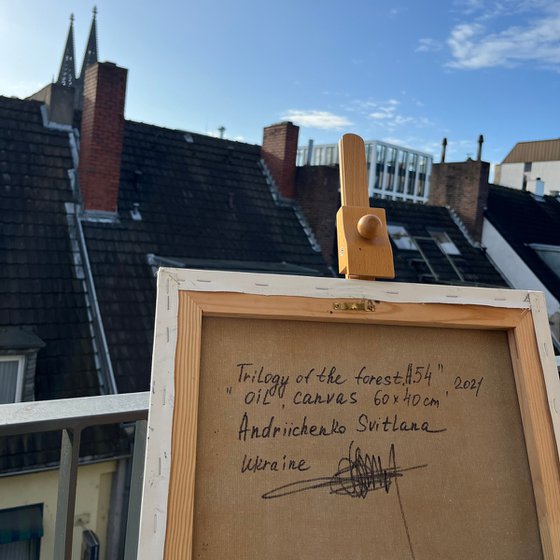 "Trilogy of the forest. A.54" 2021
OIL, canvas 60 x 40 cm
Andriichenko Svitlana
Ukraine